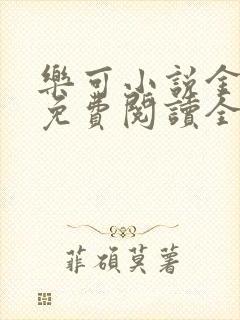 樂可小説全
免費閱讀全
菲碩莫著